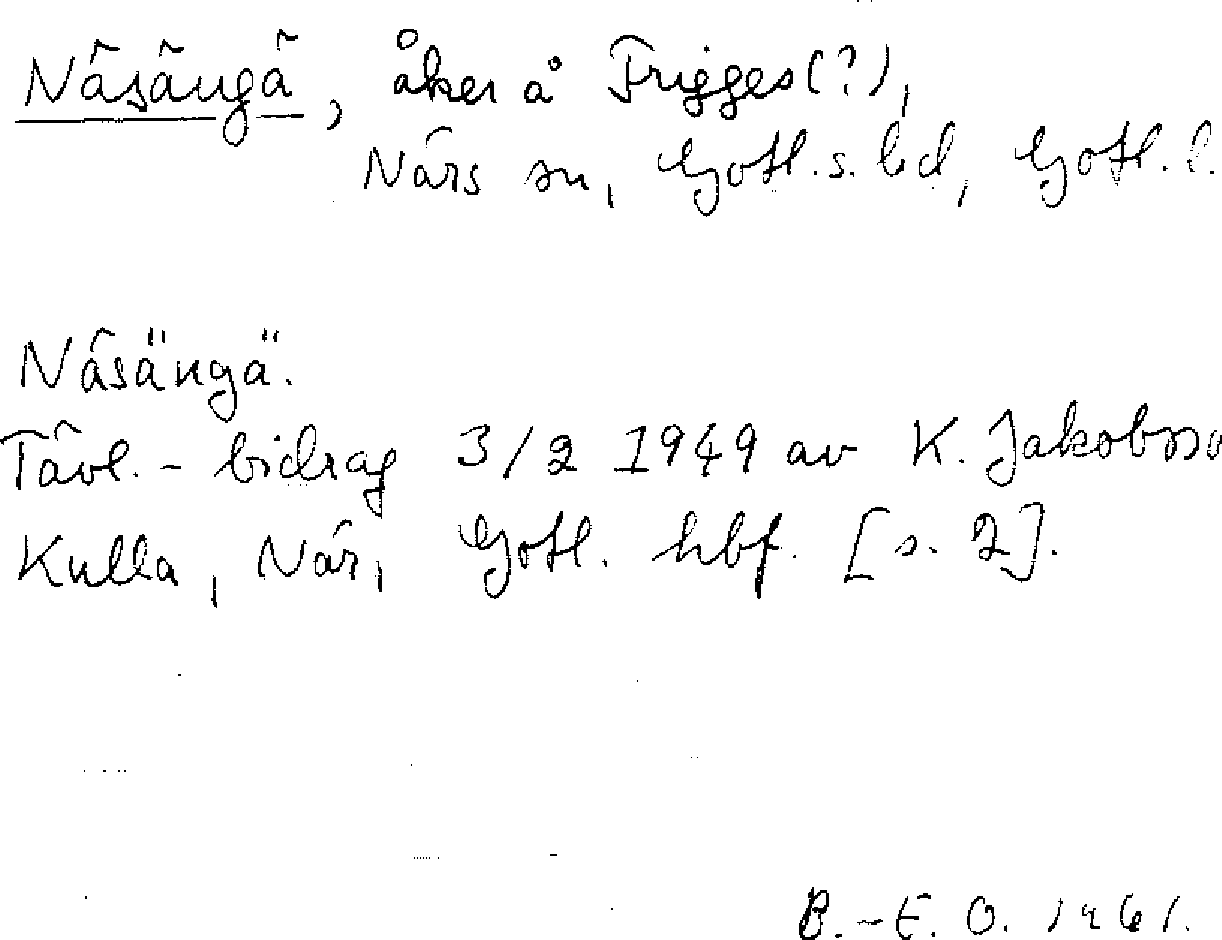 Näsängä, åker å Frigges(?),
Närs sn, Gotl. s. hd, Gotl. l.
Näsängä.
Tävl.-bidrag 3/2 1949 av K. Jakobsso
Kulla, När, Gotl. hbf. [s. 2].
B.-E. O. 1961.